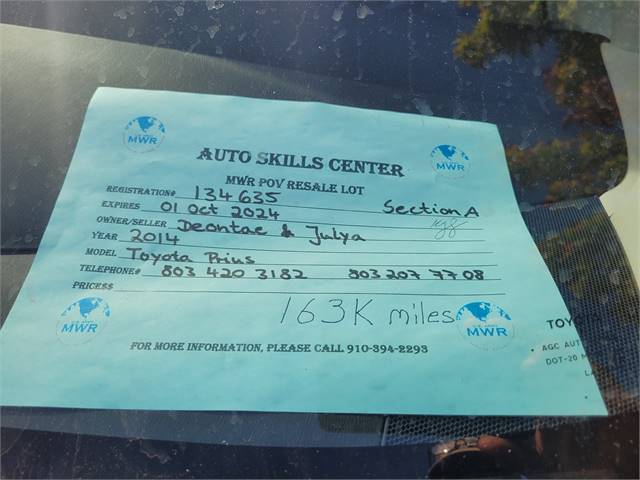 MWR
MWR
AUTO SKILLS CENTER
MWR POV RESALE LOT
REGISTRATION# 134635
EXPIRES 01 Oct 2024 Section A
OWNER/SELLER Deontae & Julya
YEAR 2014
MODEL Toyota Prius
TELEPHONE# 803 420 3182 803 207 7708
PRICE$
163K miles
MWR
MWR
FOR MORE INFORMATION, PLEASE CALL 910-394-2293
TOYO
• AGC AUT
DOT-20 M
LA